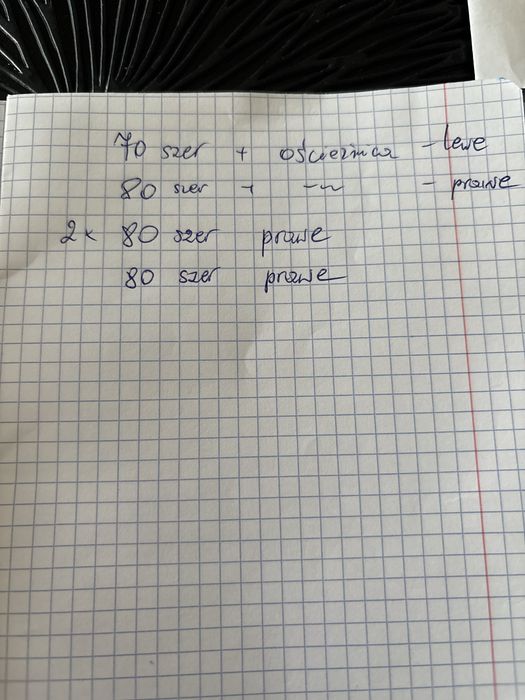 70 szer + ościeżnica - lewe
80 szer + -~- - prawe
2x 80 szer prawe
80 szer prawe